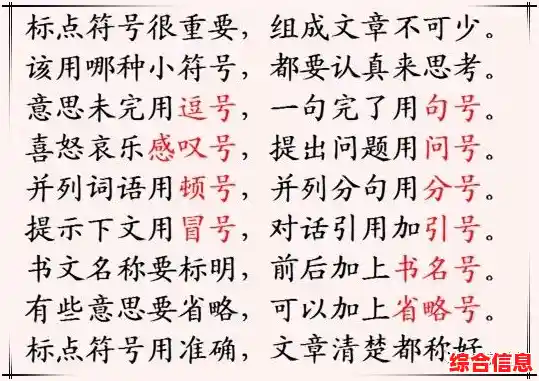 标点符号很重要，组成文章不可少。
该用哪种小符号，都要认真来思考。
意思未完用逗号，一句完了用句号。
喜怒哀乐感叹号，提出问题用问号。
并列词语用顿号，并列分句用分号。
提示下文用冒号，对话引用加引号。
书文名称要标明，前后加上书名号。
有些意思要省略，可以加上省略号。
标点符号用准确，文章清楚都称好
综合信息